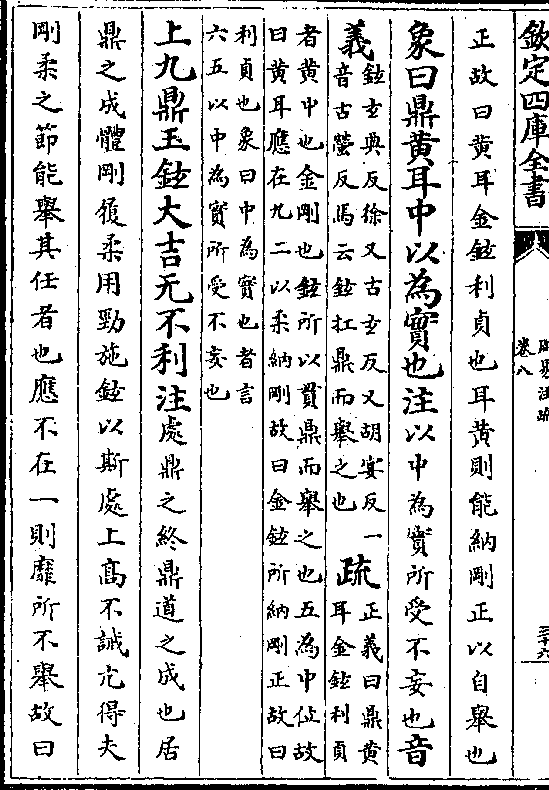 欽定四庫全書
卷八
正故曰黃耳金鉉利貞也耳黃則能納剛正以自舉也
象曰鼎黃耳中以為實也注以中為實所受不妄也音
義
鉉玄典反徐又古玄反又胡宴反一
音古螢反馬云鉉扛鼎而舉之也
疏
正義曰鼎黃
耳金鉉利貞
者黃中也金剛也鉉所以貫鼎而舉之也五為中位故
曰黃耳應在九二以柔納剛故曰金鉉所納剛正故曰
利貞也象曰中為實也者言
六五以中為實所受不妄也
上九鼎玉鉉大吉无不利注處鼎之終鼎道之成也居
鼎之成體剛履柔用勁施鉉以斯處上高不誡亢得夫
剛柔之節能舉其任者也應不在一則靡所不舉故曰